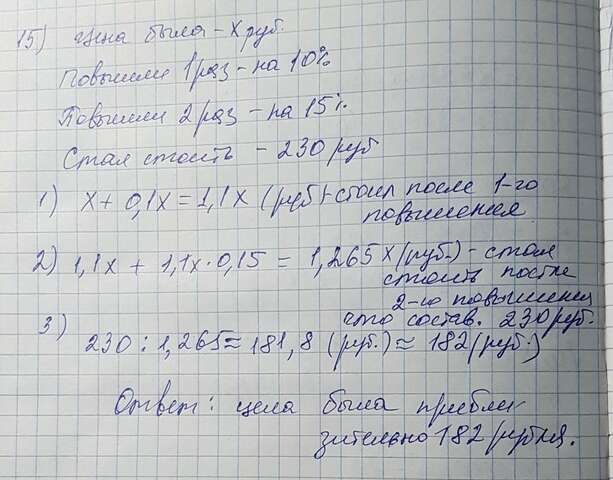 15) Цена была - х руб.
Повысили 1 раз - на 10%
Повысили 2 раз - на 15%.
Стал стоить - 230 руб
1) х + 0,1х = 1,1х (руб) - стоил после 1-го
повышения
2) 1,1х + 1,1х · 0,15 = 1,265х (руб.) - стал
стоить после
2-го повышения
что состав. 230 руб.
3) 230 : 1,265 ≈ 181,8 (руб.) ≈ 182 (руб.)
Ответ: цена была прибли-
зительно 182 рубля.